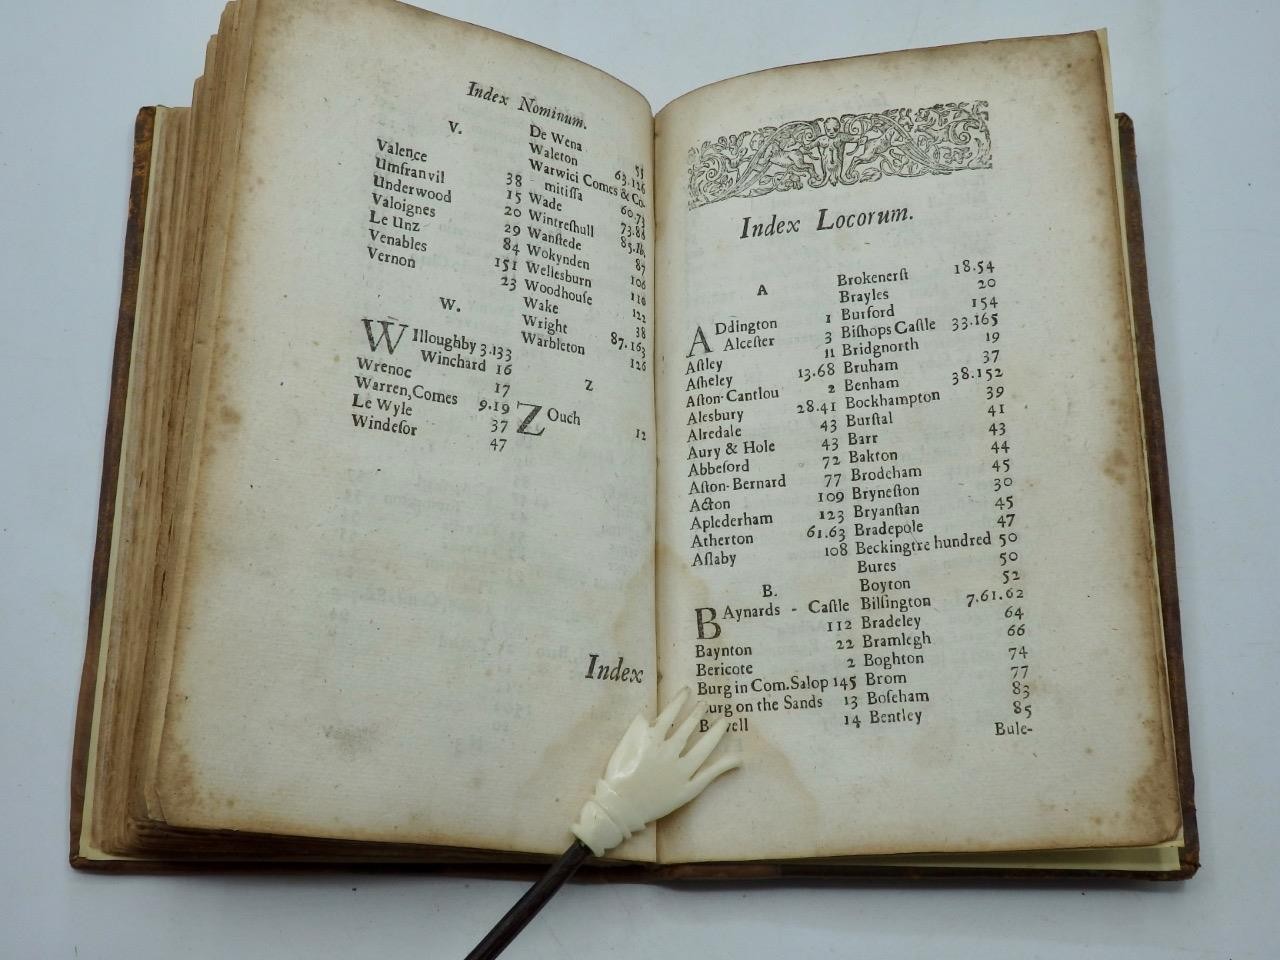 Index Nominum.
V.
Valence 38
Umfranvil 15
Underwood 20
Valoignes 29
Le Unz 84
Venables 151
Vernon 23
W.
WIlloughby 3.133
Winchard 16
Wrenoc 17
Warren, Comes 9.19
Le Wyle 37
Windeſor 47
De Wena 55
Waleton 63.126
Warwici Comes & Co-
mitiſſa 60.73
Wade 73.86
Wintreſhull 85.Ib.
Wanſtede 87
Wokynden 106
Wellesburn 110
Woodhouſe 122
Wake 38
Wright 87.163
Warbleton 126
Z
ZOuch 12
Index
Index Locorum.
A
ADdington 1
Alceſter 3
Aſtley 11
Aſheley 13.68
Aſton-Cantlou 2
Alesbury 28.41
Alredale 43
Aury & Hole 43
Abbeford 72
Aſton-Bernard 77
Acton 109
Aplederham 123
Atherton 61.63
Aſlaby 108
B.
BAynards - Caſtle
112
Baynton 22
Bericote 2
Burg in Com.Salop 145
Burg on the Sands 13
14
Brokenerſt 18.54
Brayles 20
Burford 154
Biſhops Caſtle 33.165
Bridgnorth 19
Bruham 37
Benham 38.152
Bockhampton 39
Burſtal 41
Barr 43
Bakton 44
Brodeham 45
Bryneſton 30
Bryanſtan 45
Bradepole 47
Beckingtre hundred 50
Bures 50
Boyton 52
Bilſington 7.61.62
Bradeley 64
Bramlegh 66
Boghton 74
Brom 77
Boſeham 83
Bentley 85
Bule-